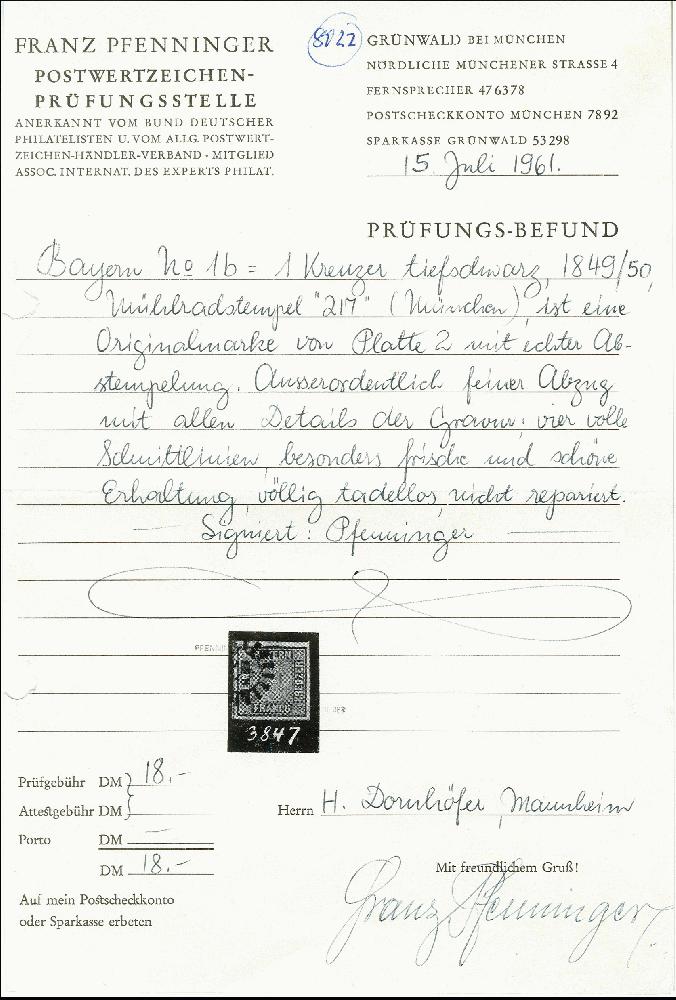 FRANZ PFENNINGER
POSTWERTZEICHEN-
PRÜFUNGSSTELLE
ANERKANNT VOM BUND DEUTSCHER
PHILATELISTEN U. VOM ALLG. POSTWERT-
ZEICHEN-HÄNDLER-VERBAND · MITGLIED
ASSOC. INTERNAT. DES EXPERTS PHILAT.
8022
GRÜNWALD BEI MÜNCHEN
NÖRDLICHE MÜNCHENER STRASSE 4
FERNSPRECHER 476378
POSTSCHECKKONTO MÜNCHEN 7892
SPARKASSE GRÜNWALD 53298
15. Juli 1961.
PRÜFUNGS-BEFUND
Bayern No 1b = 1 Kreuzer tiefschwarz, 1849/50,
Mühlradstempel "217" (München), ist eine
Originalmarke von Platte 2 mit echter Ab-
stempelung. Ausserordentlich feiner Abzug
mit allen Details der Gravur; vier volle
Schnittlinien, besonders frische und schöne
Erhaltung, völlig tadellos, nicht repariert.
Signiert: Pfenninger
BAYERN
KREUZER
FRANCO
3847
Prüfgebühr DM 18.-
Attestgebühr DM
Porto DM —
DM 18.-
Herrn H. Dornhöfer, Mannheim
Auf mein Postscheckkonto
oder Sparkasse erbeten
Mit freundlichem Gruß!
Franz Pfenninger